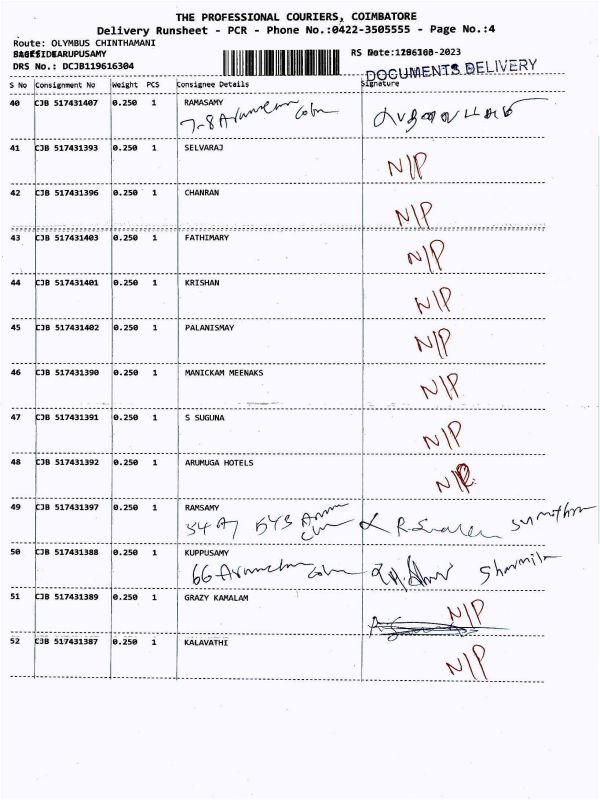 THE PROFESSIONAL COURIERS, COIMBATORE
Delivery Runsheet - PCR - Phone No.:0422-3505555 - Page No.:4
Route: OLYMBUS CHINTHAMANI
RS Date:
-2023
DRS No.: DCJB119616304
DOCUMENTS DELIVERY
S No Consignment No Weight PCS Consignee Details Signature
40 CJB 517431407 0.250 1 RAMASAMY
7-8
41 CJB 517431393 0.250 1 SELVARAJ
N/P
42 CJB 517431396 0.250 1 CHANRAN
N/P
43 CJB 517431403 0.250 1 FATHIMARY
N/P
44 CJB 517431401 0.250 1 KRISHAN
N/P
45 CJB 517431402 0.250 1 PALANISMAY
N/P
46 CJB 517431390 0.250 1 MANICKAM MEENAKS
N/P
47 CJB 517431391 0.250 1 S SUGUNA
N/P
48 CJB 517431392 0.250 1 ARUMUGA HOTELS
N/P
49 CJB 517431397 0.250 1 RAMSAMY
54 A7 543
50 CJB 517431388 0.250 1 KUPPUSAMY
66 Sharmila
51 CJB 517431389 0.250 1 GRAZY KAMALAM
N/P
52 CJB 517431387 0.250 1 KALAVATHI
N/P